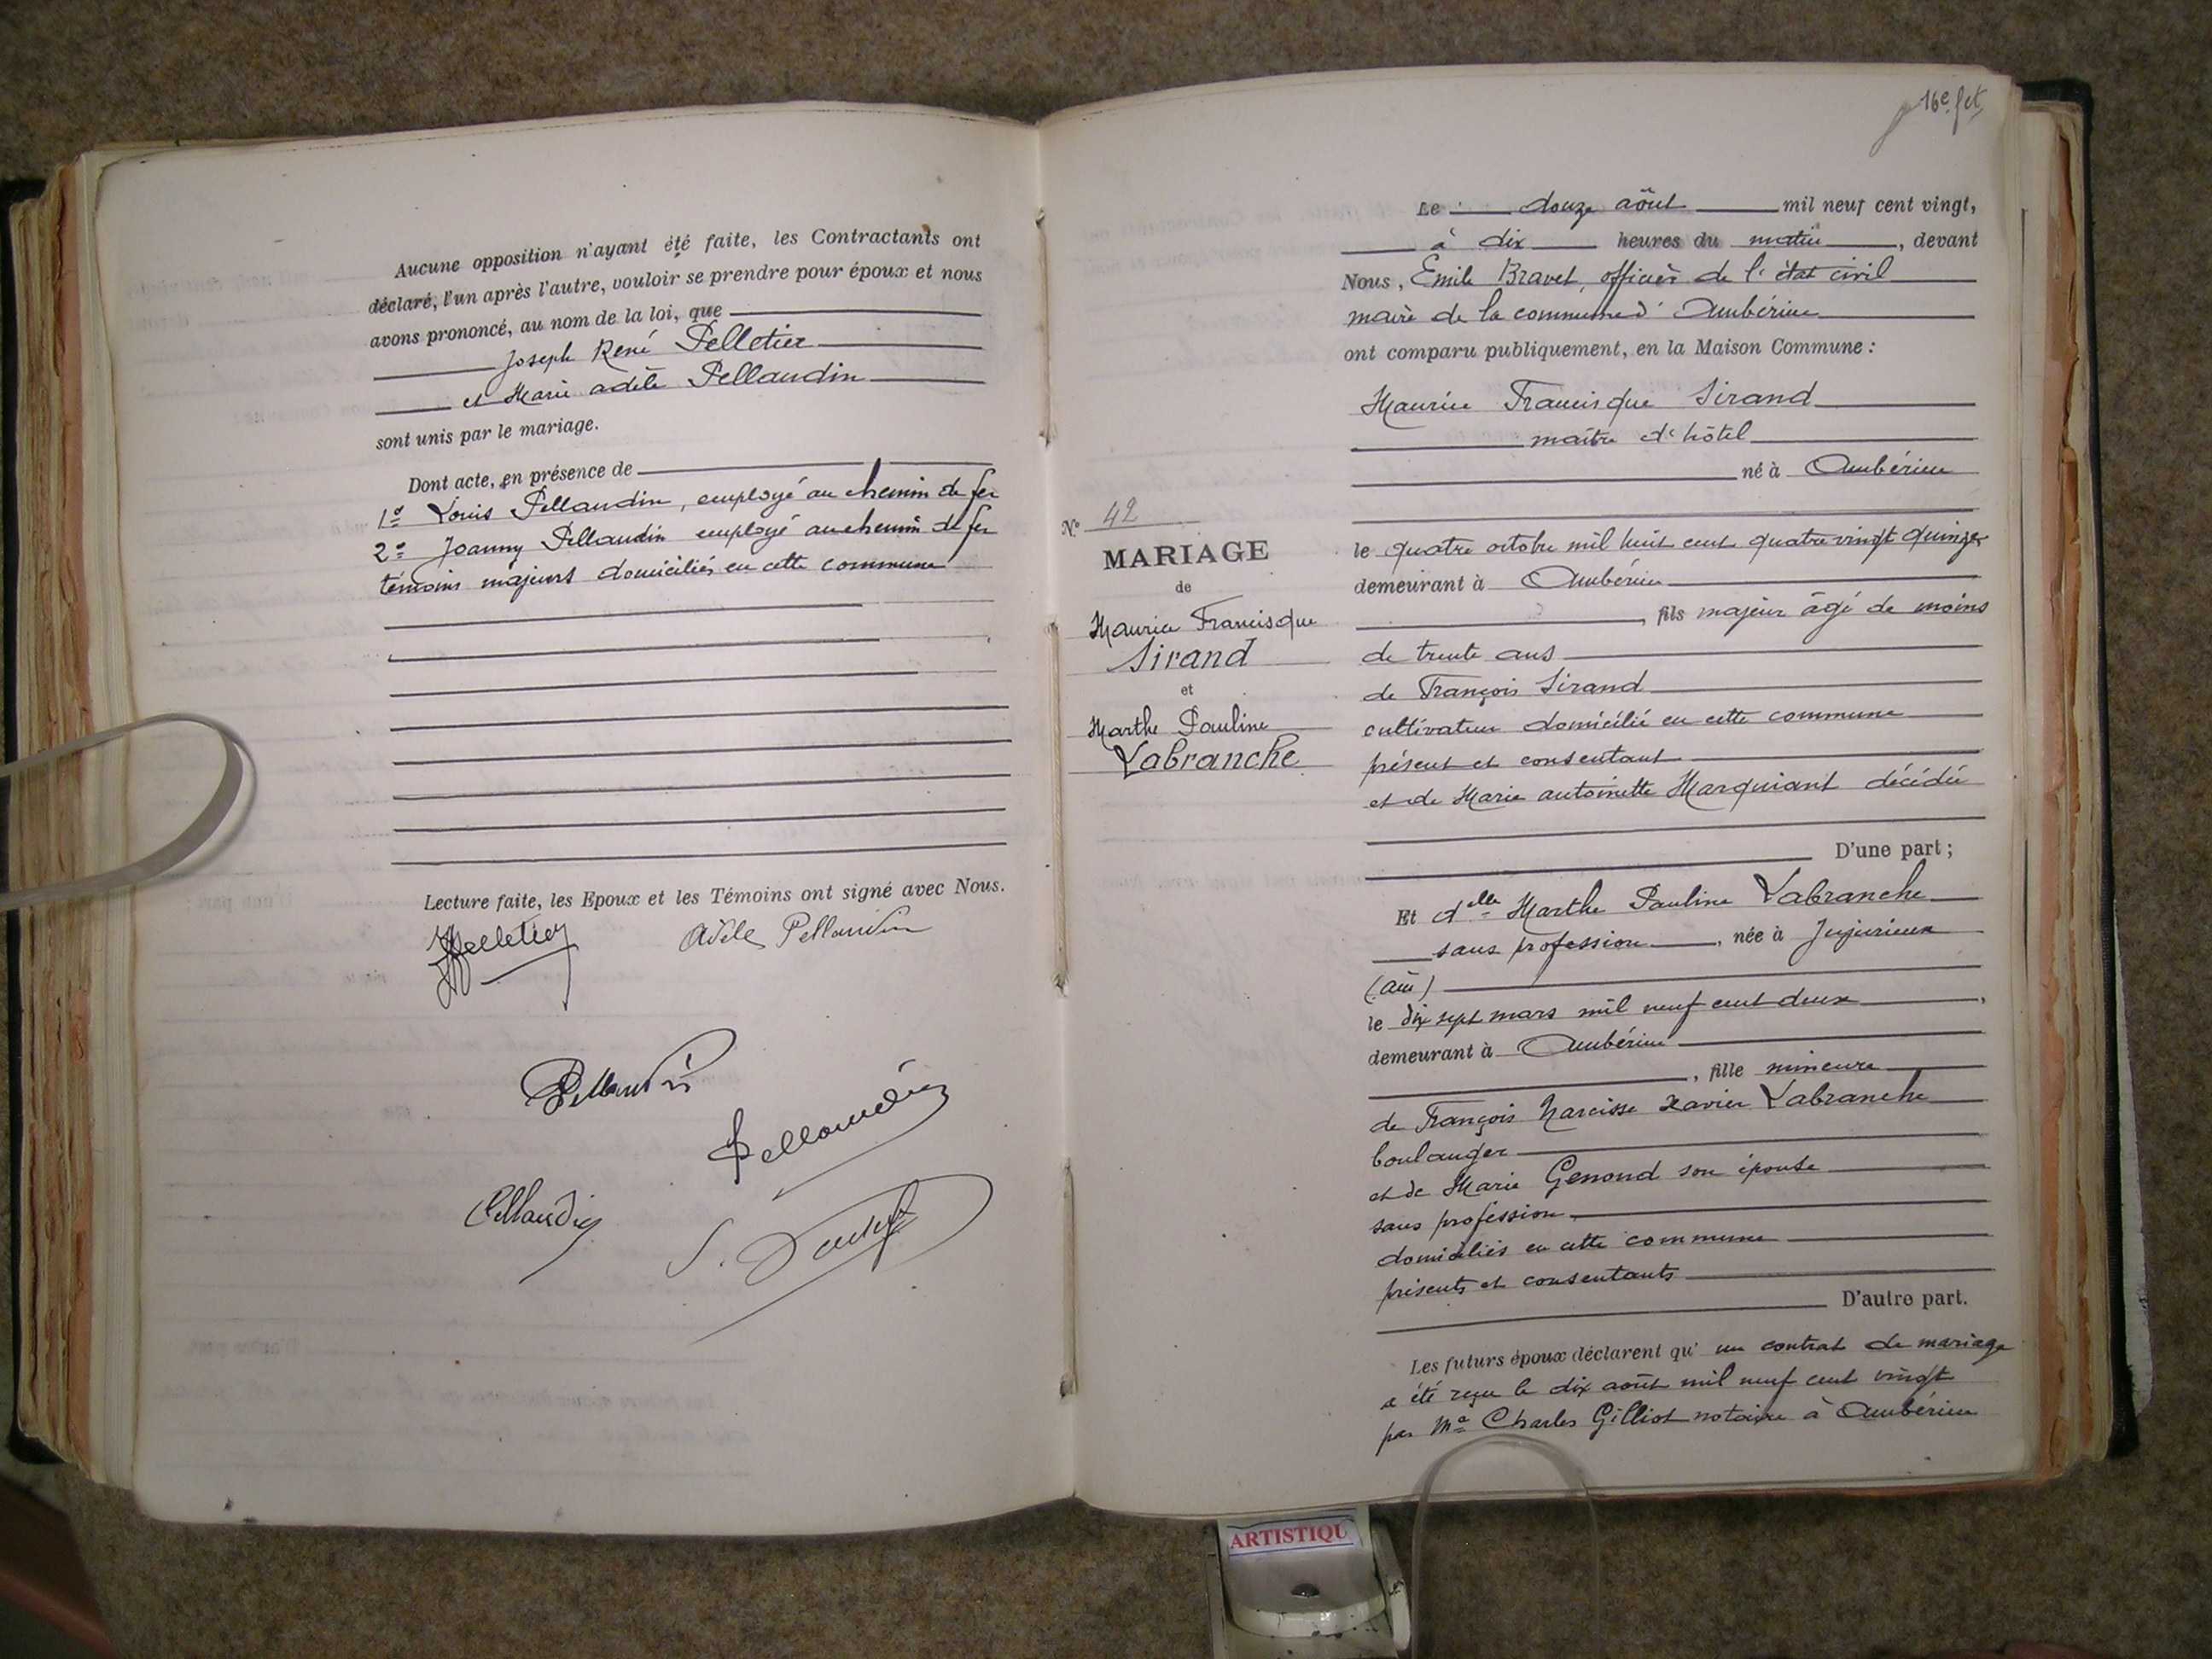 Aucune opposition n'ayant été faite, les Contractants ont
déclaré, l'un après l'autre, vouloir se prendre pour époux et nous
avons prononcé, au nom de la loi, que
Joseph René Pelletier
et Marie adèle Pellaudin
sont unis par le mariage.
Dont acte, en présence de
1º Louis Pellaudin, employé au chemin de fer
2º Joanny Pellaudin employé au chemin de fer
témoins majeurs domiciliés en cette commune
Lecture faite, les Epoux et les Témoins ont signé avec Nous.
Pelletier Adèle Pellaudin
Pellaudin
Pellaudin
Pellaudin
16e fet
Nº 42
MARIAGE
de
Maurice Francisque
Sirand
et
Marthe Pauline
Labranche
Le douze août mil neuf cent vingt,
à dix heures du matin, devant
Nous, Emile Bravet, officier de l'état civil
maire de la commune d'Ambérieu
ont comparu publiquement, en la Maison Commune :
Maurice Francisque Sirand
maître d'hôtel
né à Ambérieu
le quatre octobre mil huit cent quatre vingt quinze
demeurant à Ambérieu
, fils majeur âgé de moins
de trente ans
de François Sirand
cultivateur domicilié en cette commune
présent et consentant
et de Marie antoinette Marquiant décédée
D'une part ;
Et delle Marthe Pauline Labranche
sans profession, née à Jujurieux
(Ain)
le dix sept mars mil neuf cent deux,
demeurant à Ambérieu
, fille mineure
de François Narcisse Xavier Labranche
boulanger
et de Marie Genond son épouse
sans profession
domiciliés en cette commune
présents et consentants
D'autre part.
Les futurs époux déclarent qu'un contrat de mariage
a été reçu le dix août mil neuf cent vingt
par Me Charles Gilliot notaire à Ambérieu
ARTISTIQU